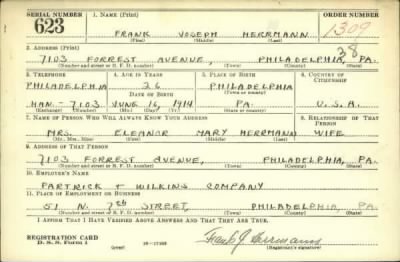 SERIAL NUMBER 1. NAME (Print) ORDER NUMBER
623 FRANK JOSEPH HERRMANN 1309
(First) (Middle) (Last)
2. ADDRESS (Print) 38
7103 FORREST AVENUE, PHILADELPHIA, PA.
(Number and street or R. F. D. number) (Town) (County) (State)
3. TELEPHONE 4. AGE IN YEARS 5. PLACE OF BIRTH 6. COUNTRY OF CITIZENSHIP
PHILADELPHIA 26 PHILADELPHIA
DATE OF BIRTH (Town or county)
HAN-7103 JUNE 16, 1914 PA. U.S.A.
(Exchange) (Number) (Mo.) (Day) (Yr.) (State or country)
7. NAME OF PERSON WHO WILL ALWAYS KNOW YOUR ADDRESS 8. RELATIONSHIP OF THAT PERSON
MRS. ELEANOR MARY HERRMANN WIFE
(Mr., Mrs., Miss) (First) (Middle) (Last)
9. ADDRESS OF THAT PERSON
7103 FORREST AVENUE, PHILADELPHIA, PA.
(Number and street or R. F. D. number) (Town) (County) (State)
10. EMPLOYER'S NAME
PARTRICK + WILKINS COMPANY
11. PLACE OF EMPLOYMENT OR BUSINESS
51 N. 7th STREET, PHILADELPHIA, PA.
(Number and street or R. F. D. number) (Town) (County) (State)
I AFFIRM THAT I HAVE VERIFIED ABOVE ANSWERS AND THAT THEY ARE TRUE.
REGISTRATION CARD
D. S. S. Form 1 (over) 16-17105 Frank J. Herrmann
(Registrant's signature)